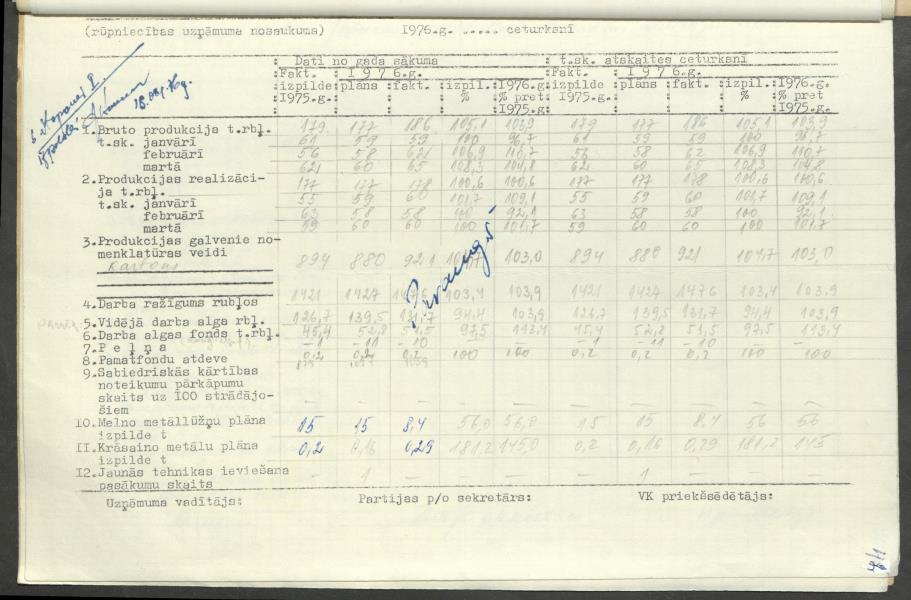 (rūpniecības uzņēmuma nosaukums) I976.g. ..... ceturksnī
Dati no gada sākuma : t.sk. atskaites ceturksnī
:Fakt. : I 9 7 6.g. :Fakt. : I 9 7 6.g.
:izpilde :plāns :fakt. :izpil.:I976.g: izpilde : plāns :fakt. :izpil.:I976.g.
:I975.g.: : : % :% pret I975.g.: : : % :% pret
I975.g. I975.g.
18.04.76g.
I.Bruto produkcija t.rbļ. 179 177 186 105,1 103,9 179 177 186 105,1 103,9
t.sk. janvārī 61 59 59 100 96,7 61 59 59 100 96,7
februārī 56 58 62 106,9 110,7 56 58 62 106,9 110,7
martā 62 60 65 108,3 104,8 62 60 65 108,3 104,8
2.Produkcijas realizāci-
ja t.rbļ. 177 177 178 100,6 100,6 177 177 178 100,6 100,6
t.sk. janvārī 55 59 60 101,7 109,1 55 59 60 101,7 109,1
februārī 63 58 58 100 92,1 63 58 58 100 92,1
martā 59 60 60 100 101,7 59 60 60 100 101,7
3.Produkcijas galvenie no-
menklatūras veidi
Kartons 894 880 921 104,7 103,0 894 880 921 104,7 103,0
4.Darba ražīgums rubļos 1421 1427 1476 103,4 103,9 1421 1427 1476 103,4 103,9
5.Vidējā darba alga rbļ. 126,7 139,5 131,7 94,4 103,9 126,7 139,5 131,7 94,4 103,9
6.Darba algas fonds t.rbļ. 45,4 52,8 51,5 97,5 113,4 45,4 52,8 51,5 97,5 113,4
7.P e ļ ņ a -1 -11 -10 — — -1 -11 -10 — —
8.Pamatfondu atdeve 0,2 0,2 0,2 100 100 0,2 0,2 0,2 100 100
9.Sabiedriskās kārtības
noteikumu pārkāpumu
skaits uz I00 strādājo-
šiem — — — — — — — — — —
IO.Melno metāllūžņu plāna
izpilde t 15 15 8,4 56,0 56,0 15 15 8,4 56 56
II.Krāsaino metālu plāna
izpilde t 0,2 0,16 0,29 181,2 145,0 0,2 0,16 0,29 181,2 145
I2.Jaunās tehnikas ieviešana
pasākumu skaits — 1 — — — — 1 — — —
Uzņēmuma vadītājs: Partijas p/o sekretārs: VK priekšsēdētājs: